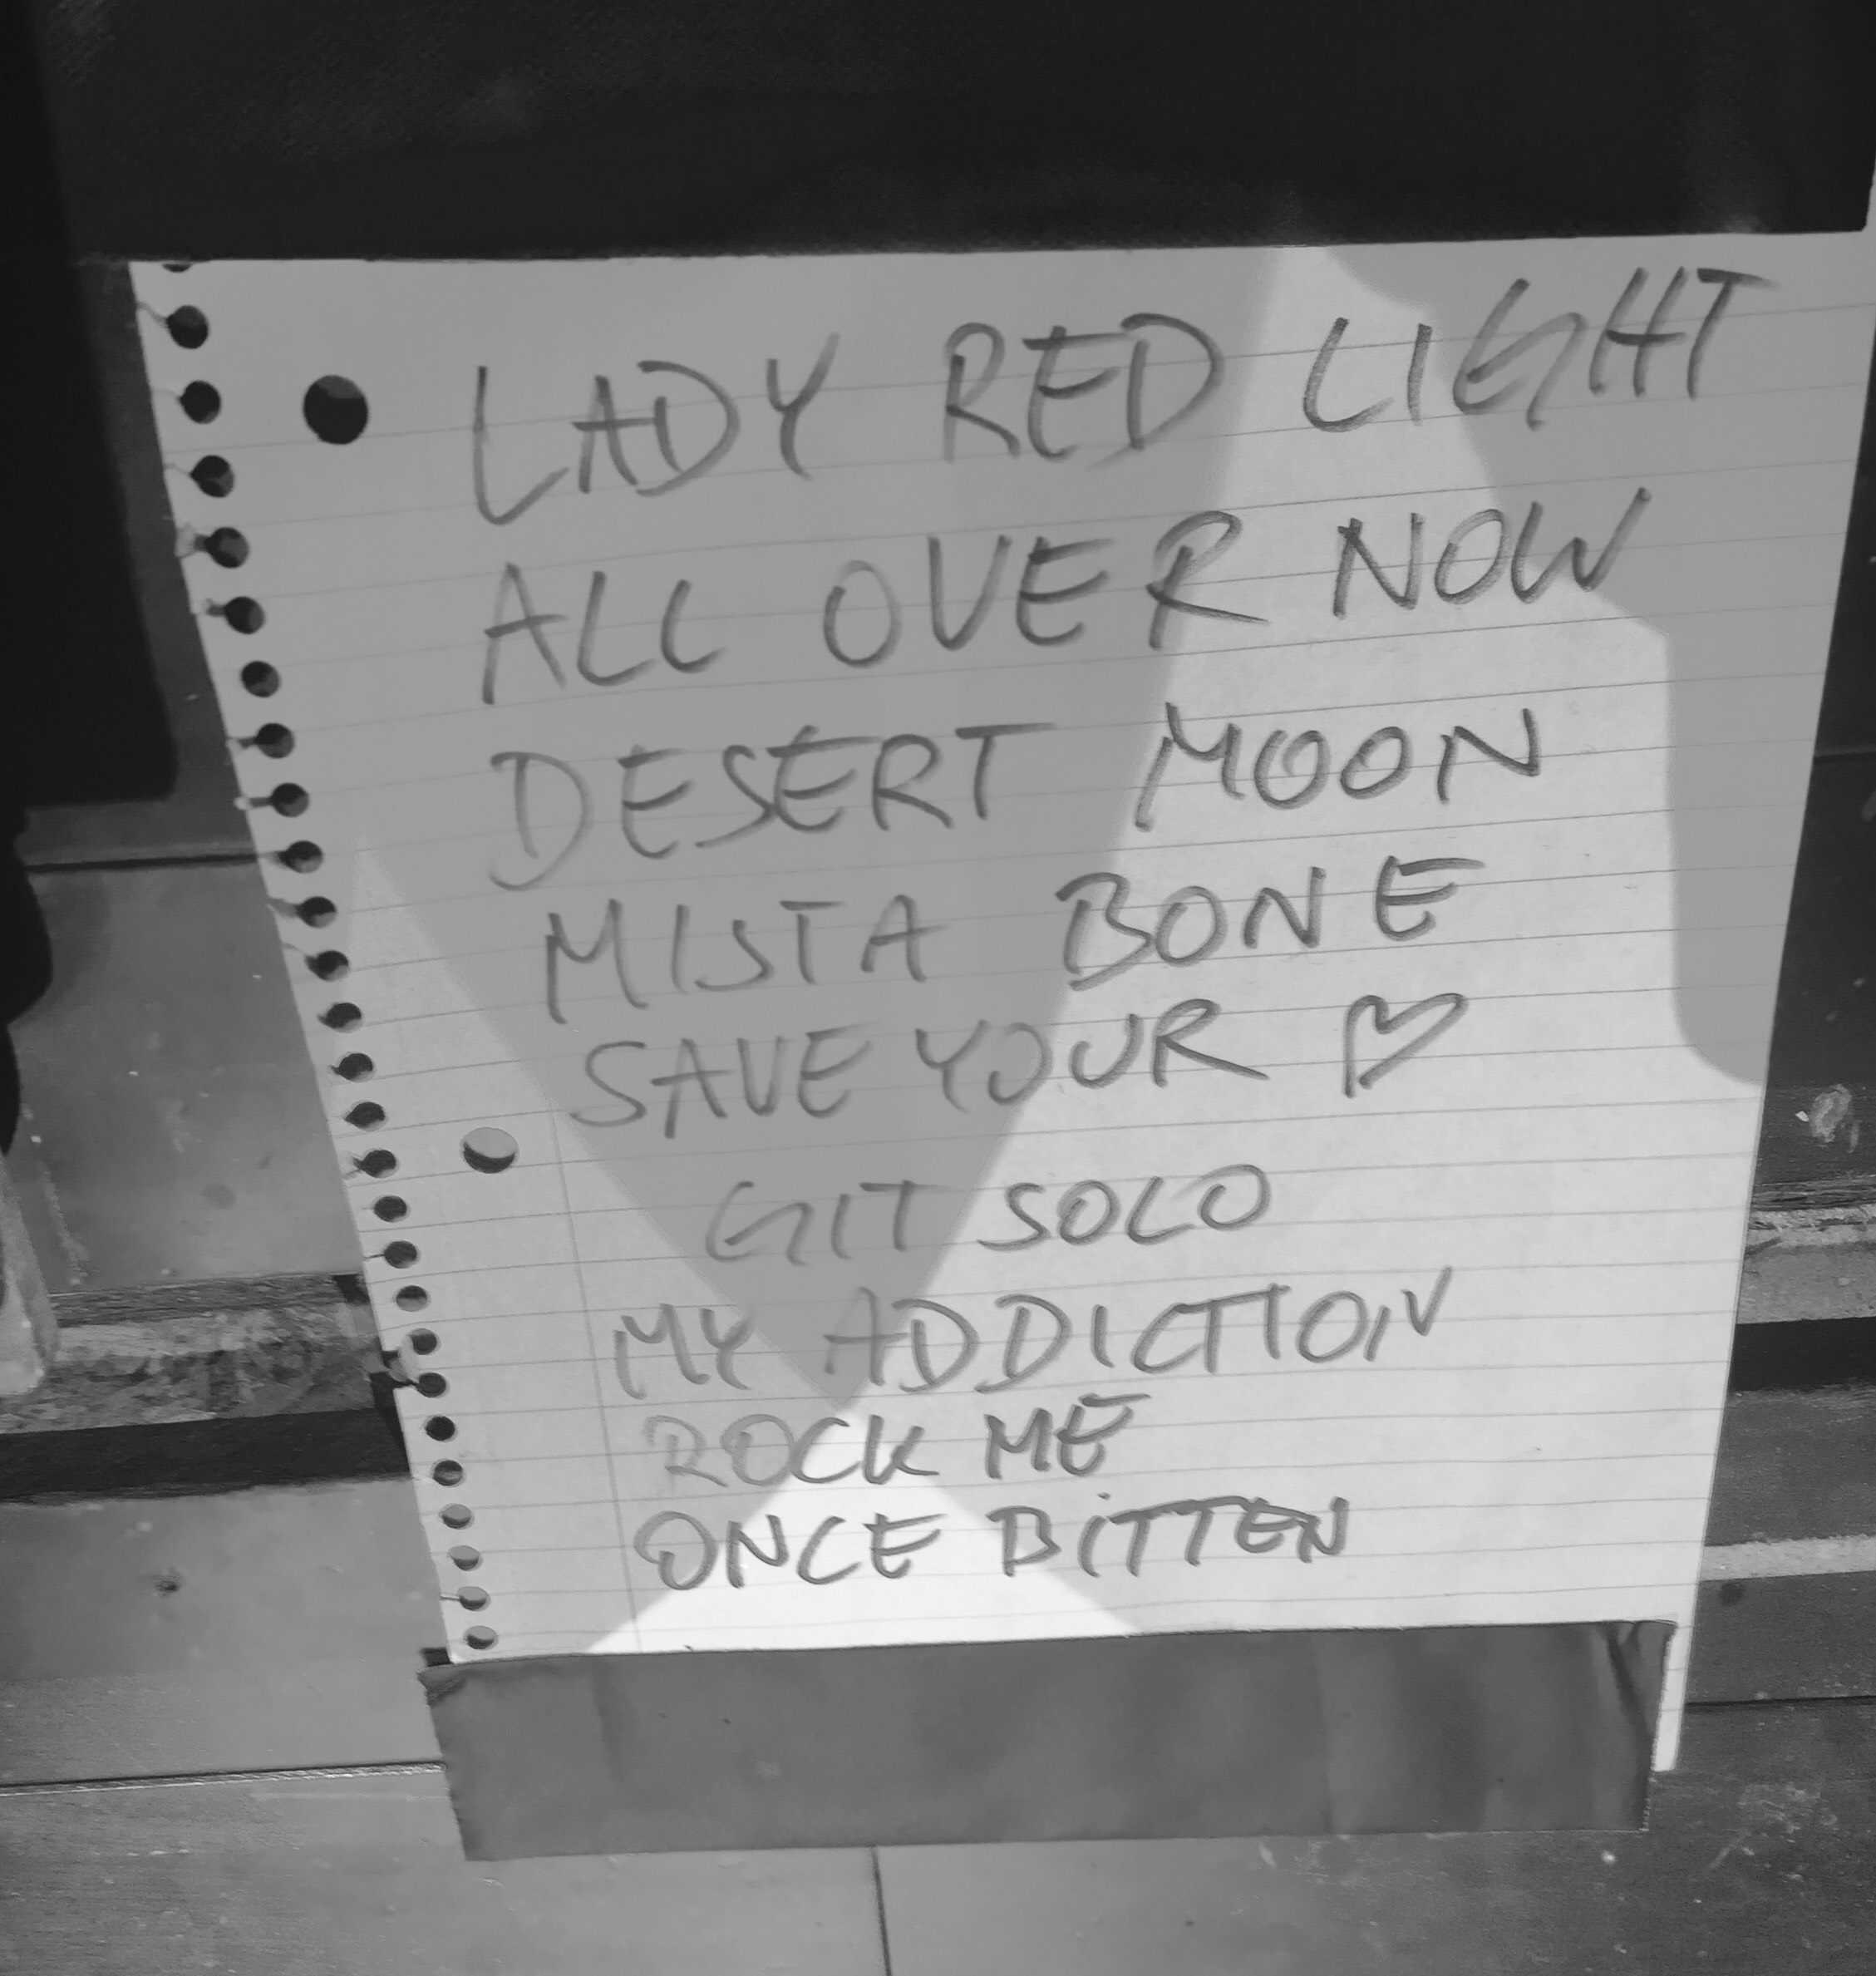 LADY RED LIGHT
ALL OVER NOW
DESERT MOON
MISTA BONE
SAVE YOUR ♡
GIT SOLO
MY ADDICTION
ROCK ME
ONCE BITTEN